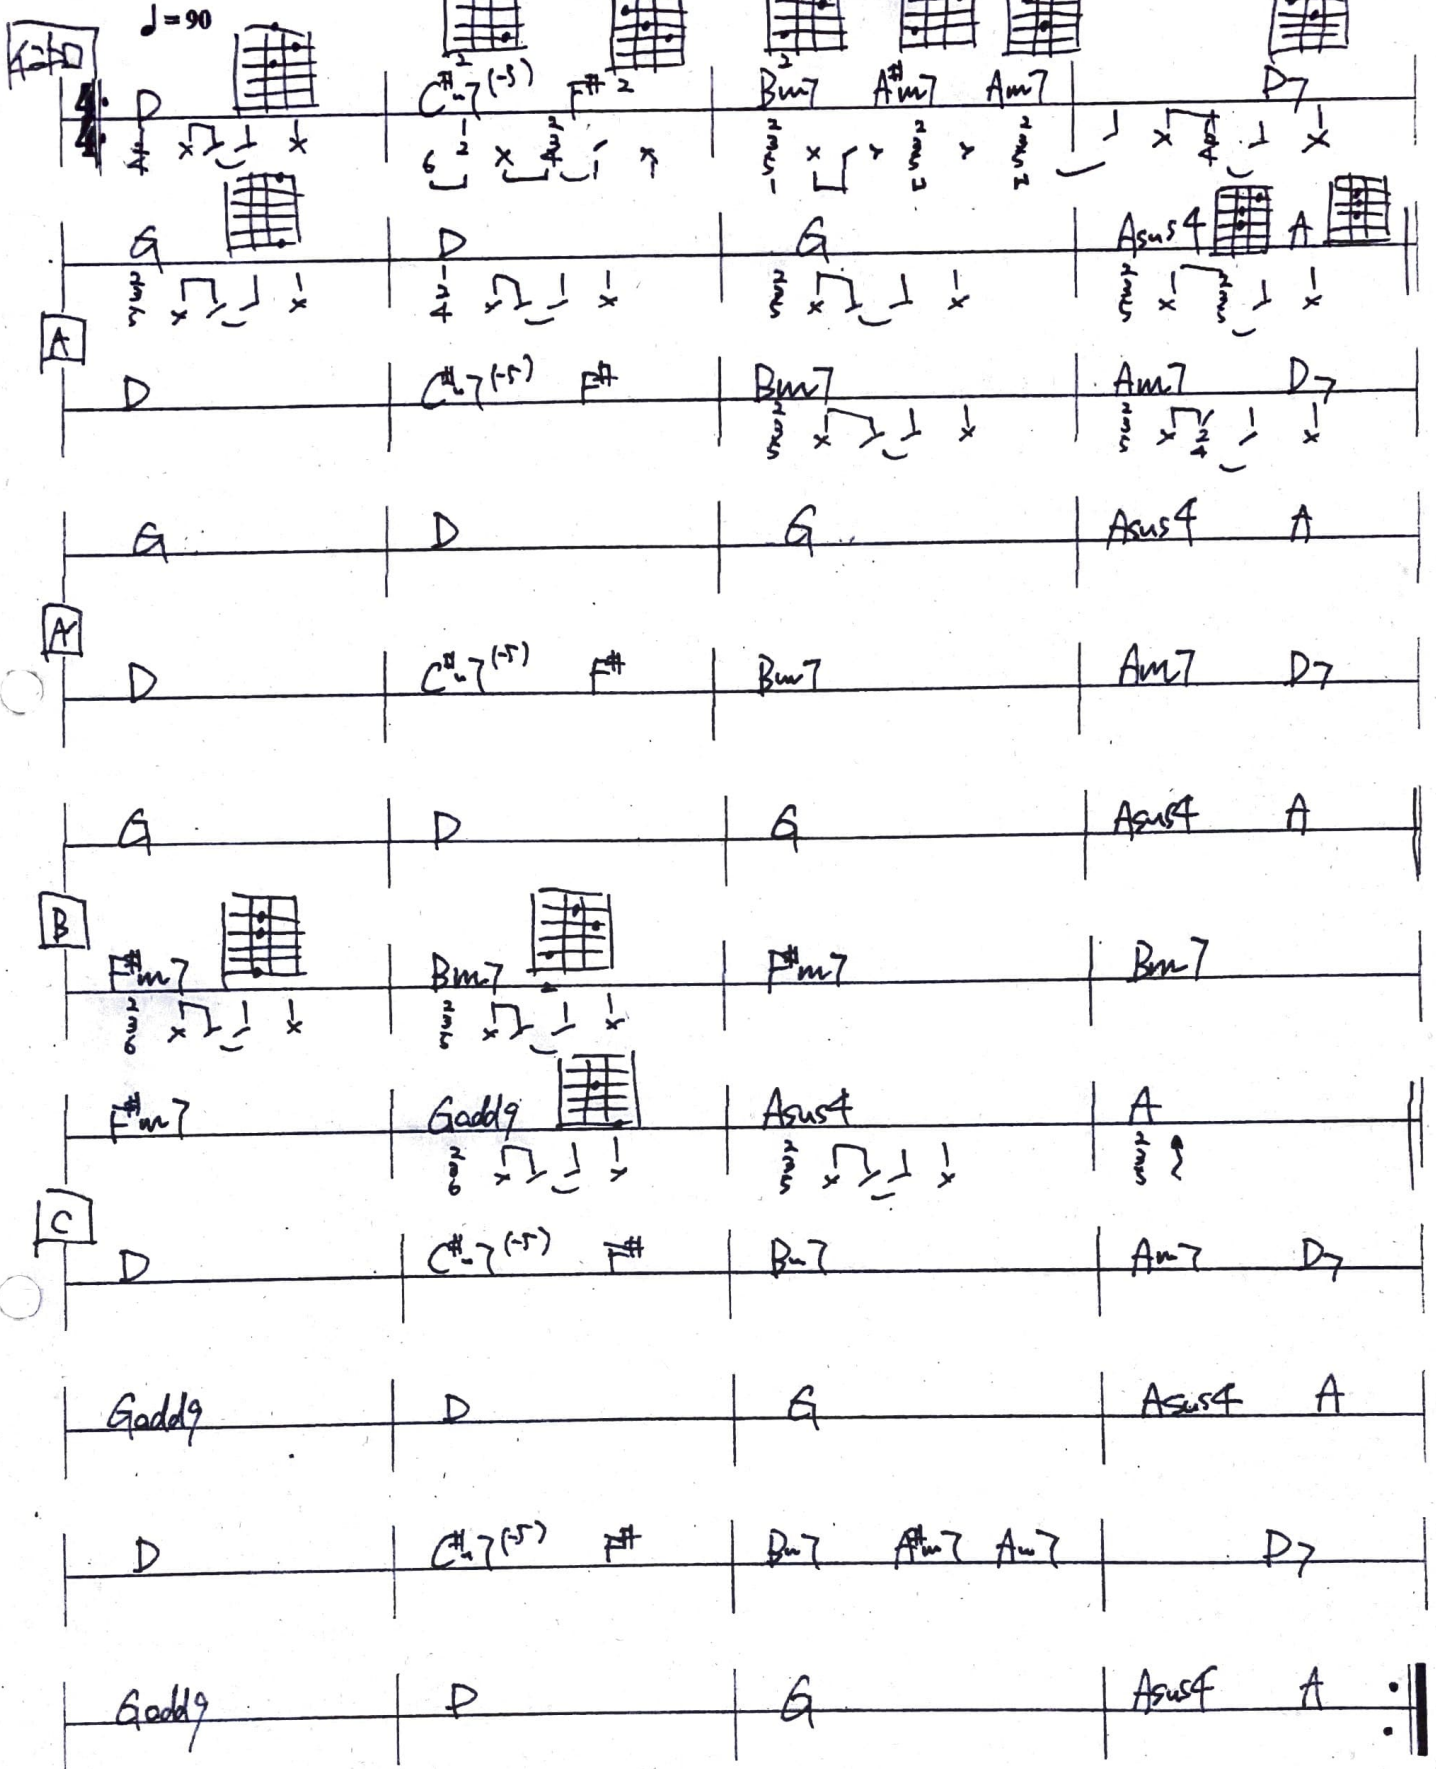 ♩=90
イントロ
4/4 D C#m7(-5) F# Bm7 A#m7 Am7 D7
G D G Asus4 A
A
D C#m7(-5) F# Bm7 Am7 D7
G D G Asus4 A
A'
D C#m7(-5) F# Bm7 Am7 D7
G D G Asus4 A
B
F#m7 Bm7 F#m7 Bm7
F#m7 Gadd9 Asus4 A
C
D C#m7(-5) F# Bm7 Am7 D7
Gadd9 D G Asus4 A
D C#m7(-5) F# Bm7 A#m7 Am7 D7
Gadd9 D G Asus4 A